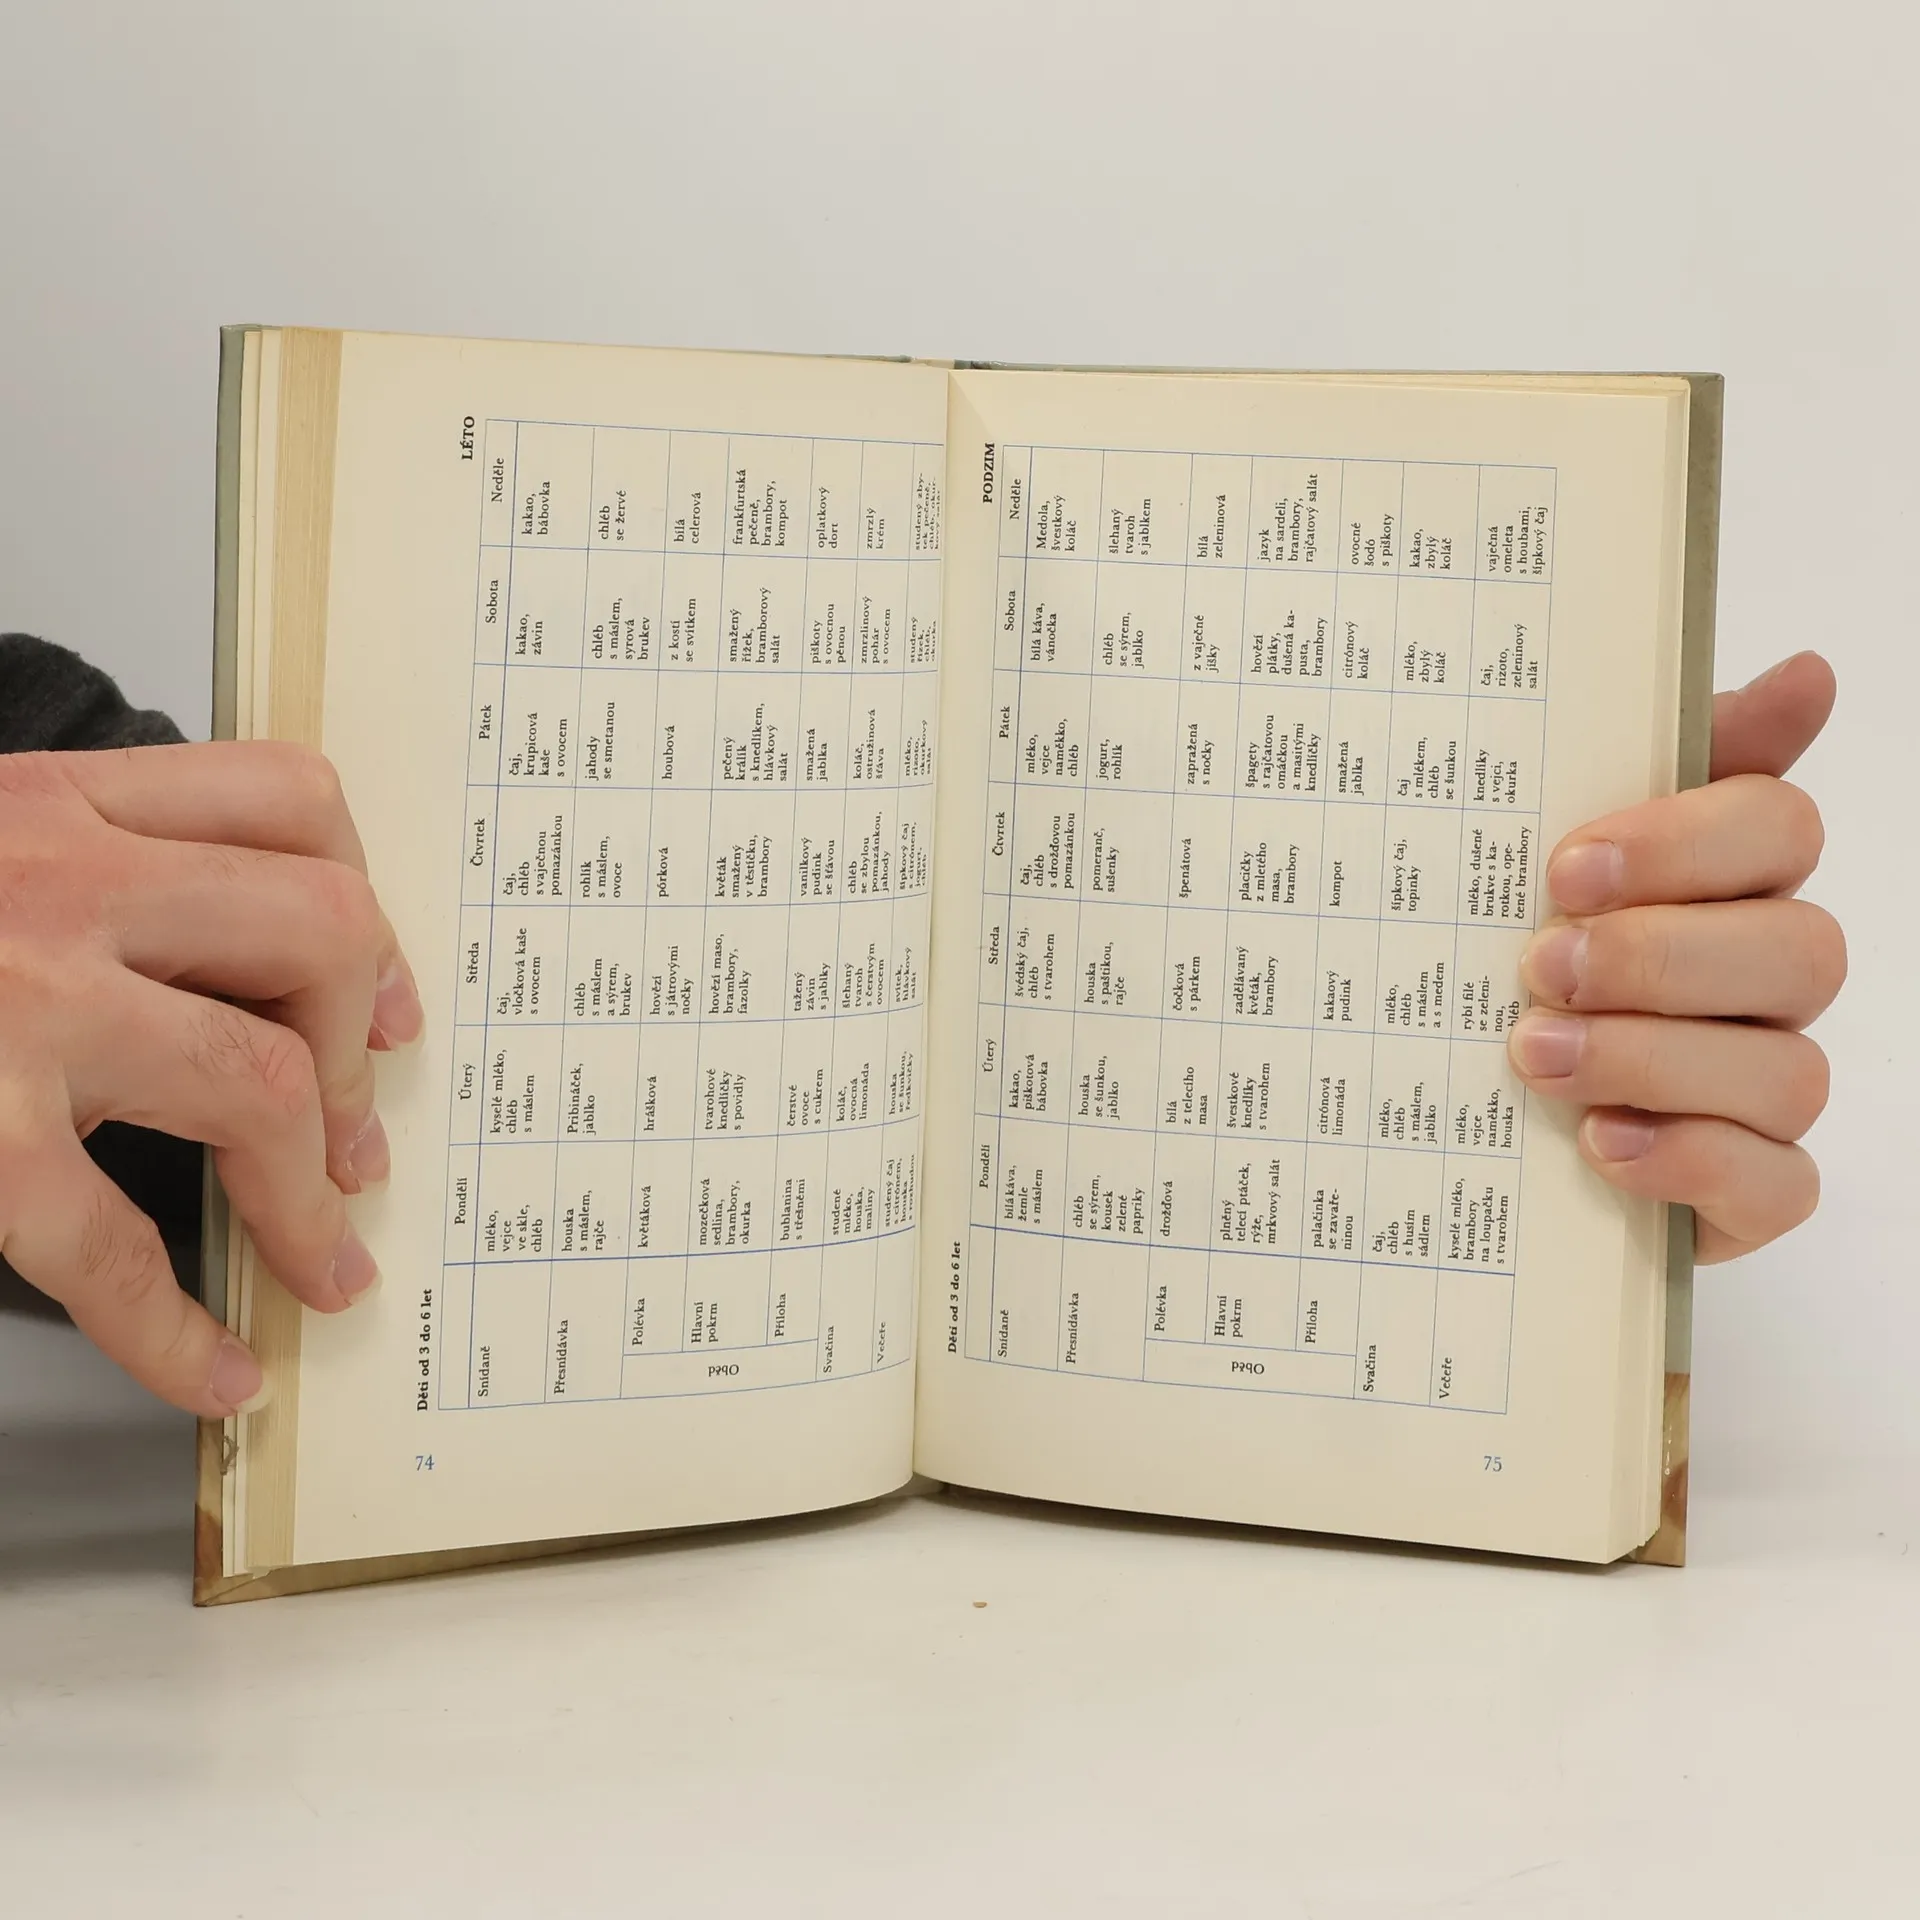 Děti od 3 do 6 let
LÉTO
Pondělí
Úterý
Středa
Čtvrtek
Pátek
Sobota
Neděle
Snídaně
mléko,
vejce
ve skle,
chléb
kyselé mléko,
chléb
s máslem
čaj,
vločková kaše
s ovocem
čaj,
chléb
s vaječnou
pomazánkou
čaj,
krupicová
kaše
s ovocem
kakao,
závin
kakao,
bábovka
Přesnídávka
houska
s máslem,
rajče
Pribináček,
jablko
chléb
s máslem
a sýrem,
brukev
rohlík
s máslem,
ovoce
jahody
se smetanou
chléb
s máslem,
syrová
brukev
chléb
se žervé
Oběd
Polévka
květáková
hrášková
hovězí
s játrovými
nočky
pórková
houbová
z kostí
se svítkem
bílá
celerová
Hlavní
pokrm
mozečková
sedlina,
brambory,
okurka
tvarohové
knedlíčky
s povidly
hovězí maso,
brambory,
fazolky
květák
smažený
v těstíčku,
brambory
pečený
králík
s knedlíkem,
hlávkový
salát
smažený
řízek,
bramborový
salát
frankfurtská
pečeně,
brambory,
kompot
Příloha
bublanina
s třešněmi
čerstvé
ovoce
s cukrem
tažený
závin
s jablky
vanilkový
pudink
se šťávou
smažená
jablka
piškoty
s ovocnou
pěnou
oplatkový
dort
Svačina
studené
mléko,
houska,
maliny
koláč,
ovocná
limonáda
šlehaný
tvaroh
s čerstvým
ovocem
chléb
se zbylou
pomazánkou,
jahody
koláč,
ostružinová
šťáva
zmrzlinový
pohár
s ovocem
zmrzlý
krém
Večeře
studený čaj
s citrónem,
houska
houska
se šunkou,
ředkvičky
svítek,
hlávkový
salát
šípkový čaj
s citrónem,
jogurt,
chléb
mléko,
rizoto,
okurkový
salát
studený
řízek,
chléb,
okurka
studený zby-
tek pečeně,
chléb, okur-
kový salát
74
Děti od 3 do 6 let
PODZIM
Pondělí
Úterý
Středa
Čtvrtek
Pátek
Sobota
Neděle
Snídaně
bílá káva,
žemle
s máslem
kakao,
piškotová
bábovka
švédský čaj,
chléb
s tvarohem
čaj,
chléb
s drožďovou
pomazánkou
mléko,
vejce
naměkko,
chléb
bílá káva,
vánočka
Medola,
švestkový
koláč
Přesnídávka
chléb
se sýrem,
kousek
zelené
papriky
houska
se šunkou,
jablko
houska
s paštikou,
rajče
pomeranč,
sušenky
jogurt,
rohlík
chléb
se sýrem,
jablko
šlehaný
tvaroh
s jablkem
Oběd
Polévka
drožďová
bílá
z telecího
masa
čočková
s párkem
špenátová
zapražená
s nočky
z vaječné
jíšky
bílá
zeleninová
Hlavní
pokrm
plněný
telecí ptáček,
rýže,
mrkvový salát
švestkové
knedlíky
s tvarohem
zadělávaný
květák,
brambory
placičky
z mletého
masa,
brambory
špagety
s rajčatovou
omáčkou
a masitými
knedlíčky
hovězí
plátky,
dušená ka-
pusta,
brambory
jazyk
na sardeli,
brambory,
rajčatový salát
Příloha
palačinka
se zavaře-
ninou
citrónová
limonáda
kakaový
pudink
kompot
smažená
jablka
citrónový
koláč
ovocné
šodó
s piškoty
Svačina
čaj,
chléb
s husím
sádlem
mléko,
chléb
s máslem,
jablko
mléko,
chléb
s máslem
a s medem
šípkový čaj,
topinky
čaj
s mlékem,
chléb
se šunkou
mléko,
zbylý
koláč
kakao,
zbylý
koláč
Večeře
kyselé mléko,
brambory
na loupačku
s tvarohem
mléko,
vejce
naměkko,
houska
rybí filé
se zeleni-
nou,
chléb
mléko, dušené
brukve s ka-
rotkou, ope-
čené brambory
knedlíky
s vejci,
okurka
čaj,
rizoto,
zeleninový
salát
vaječná
omeleta
s houbami,
šípkový čaj
75